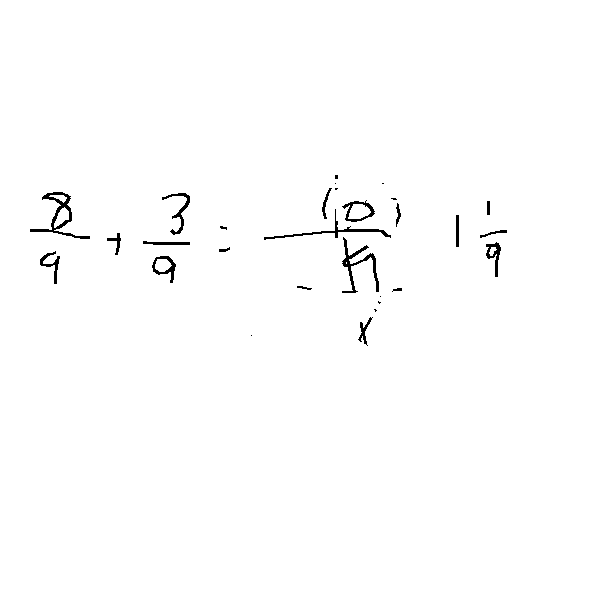 8/9 + 3/9 = 10/9 1 1/9